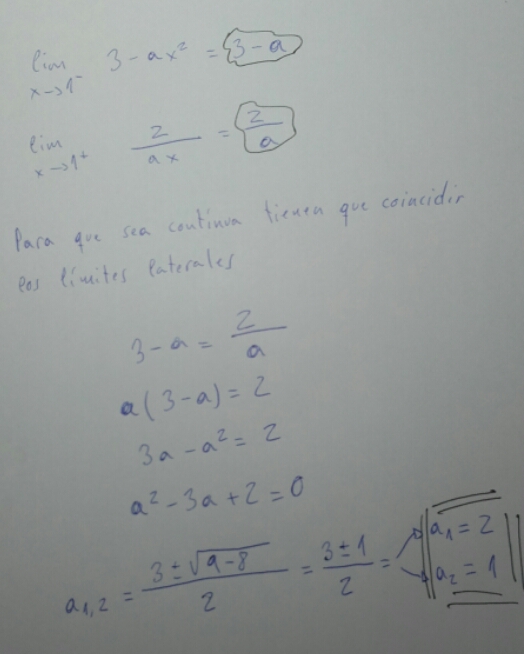 lim x→1⁻ 3-ax² = 3-a
lim x→1⁺ 2/ax = 2/a
Para que sea continua tienen que coincidir
los límites laterales
3-a = 2/a
a(3-a) = 2
3a-a² = 2
a²-3a+2=0
a₁,₂ = (3±√9-8)/2 = (3±1)/2 = a₁=2
a₂=1